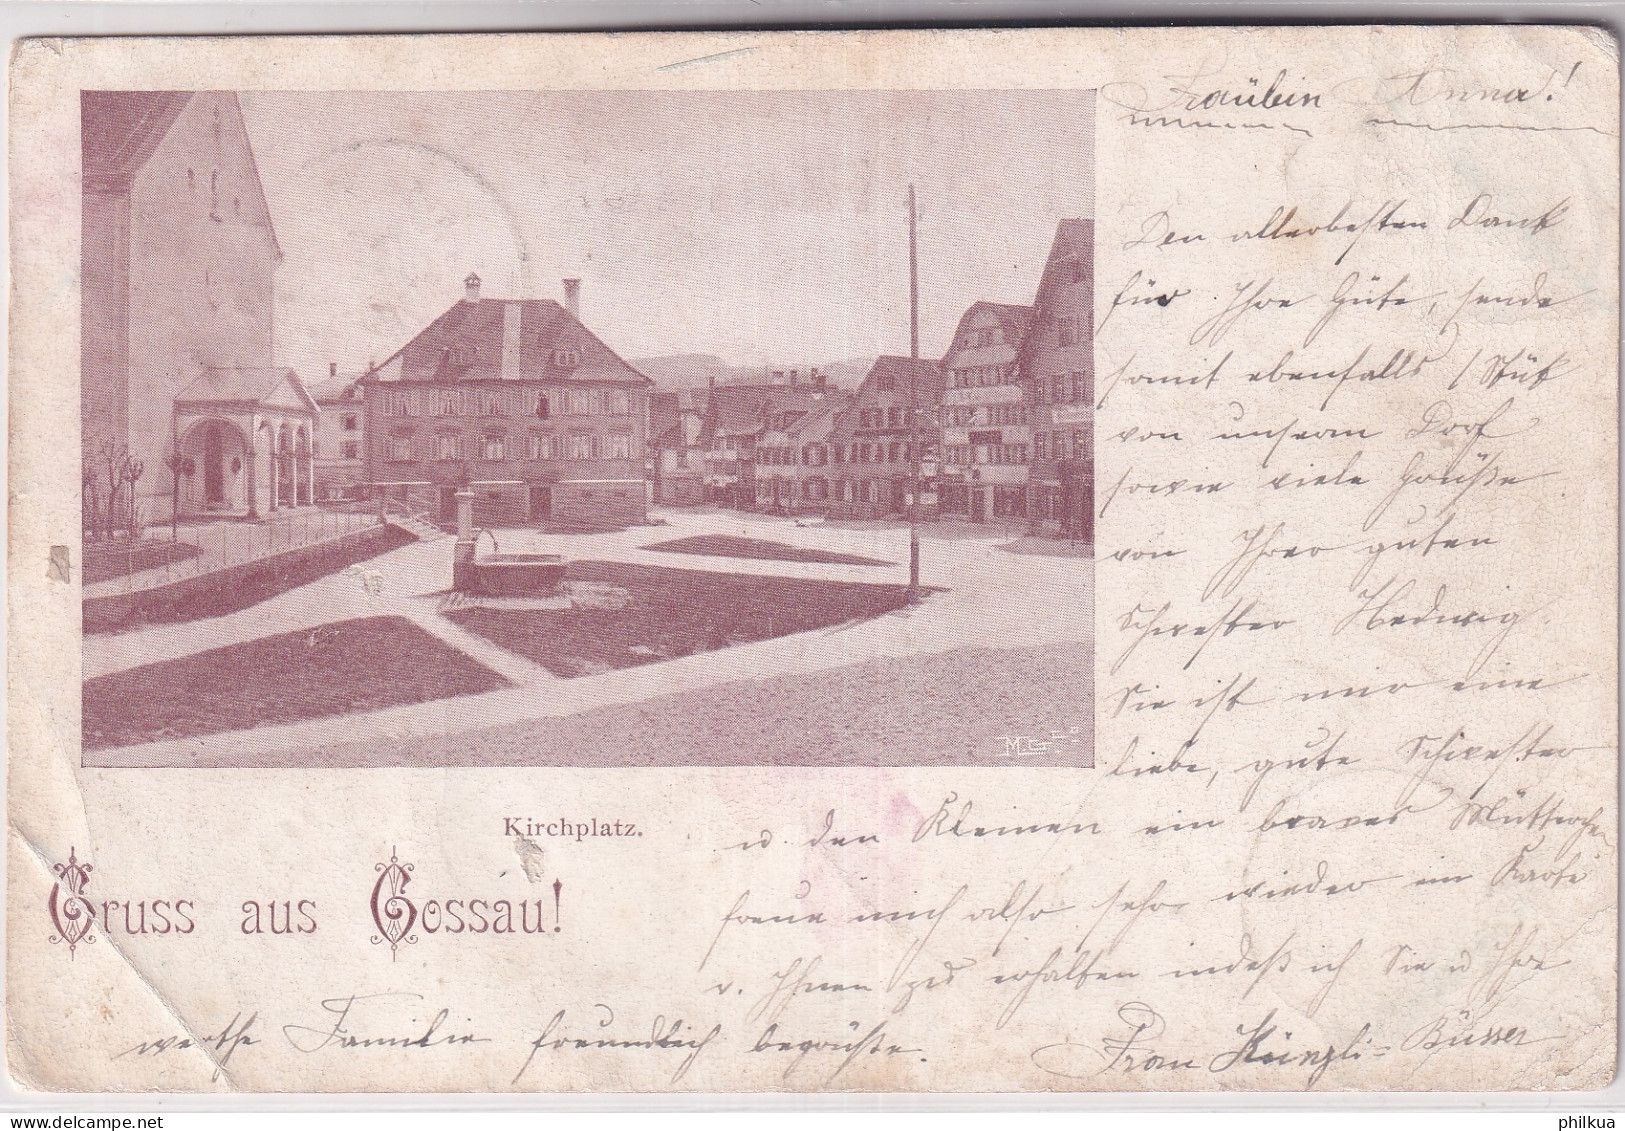 Fräulein Anna!
Den allerbesten Dank
für Ihre Güte, sende
somit ebenfalls 1 Stük
von unserm Dorf
sowie viele Grüße
von Ihrer guten
Schwester Hedwig.
Sie ist mir eine
liebe, gute Schwester
u. den Kleinen ein braves Mütterchen
freue mich also sehr wieder ein Karte
v. Ihnen zu erhalten indeß ich Sie u Ihre
werthe Familie freundlich begrüße.
Frau Künzli=Büsser
MG
Kirchplatz.
Gruss aus Gossau!
philkua